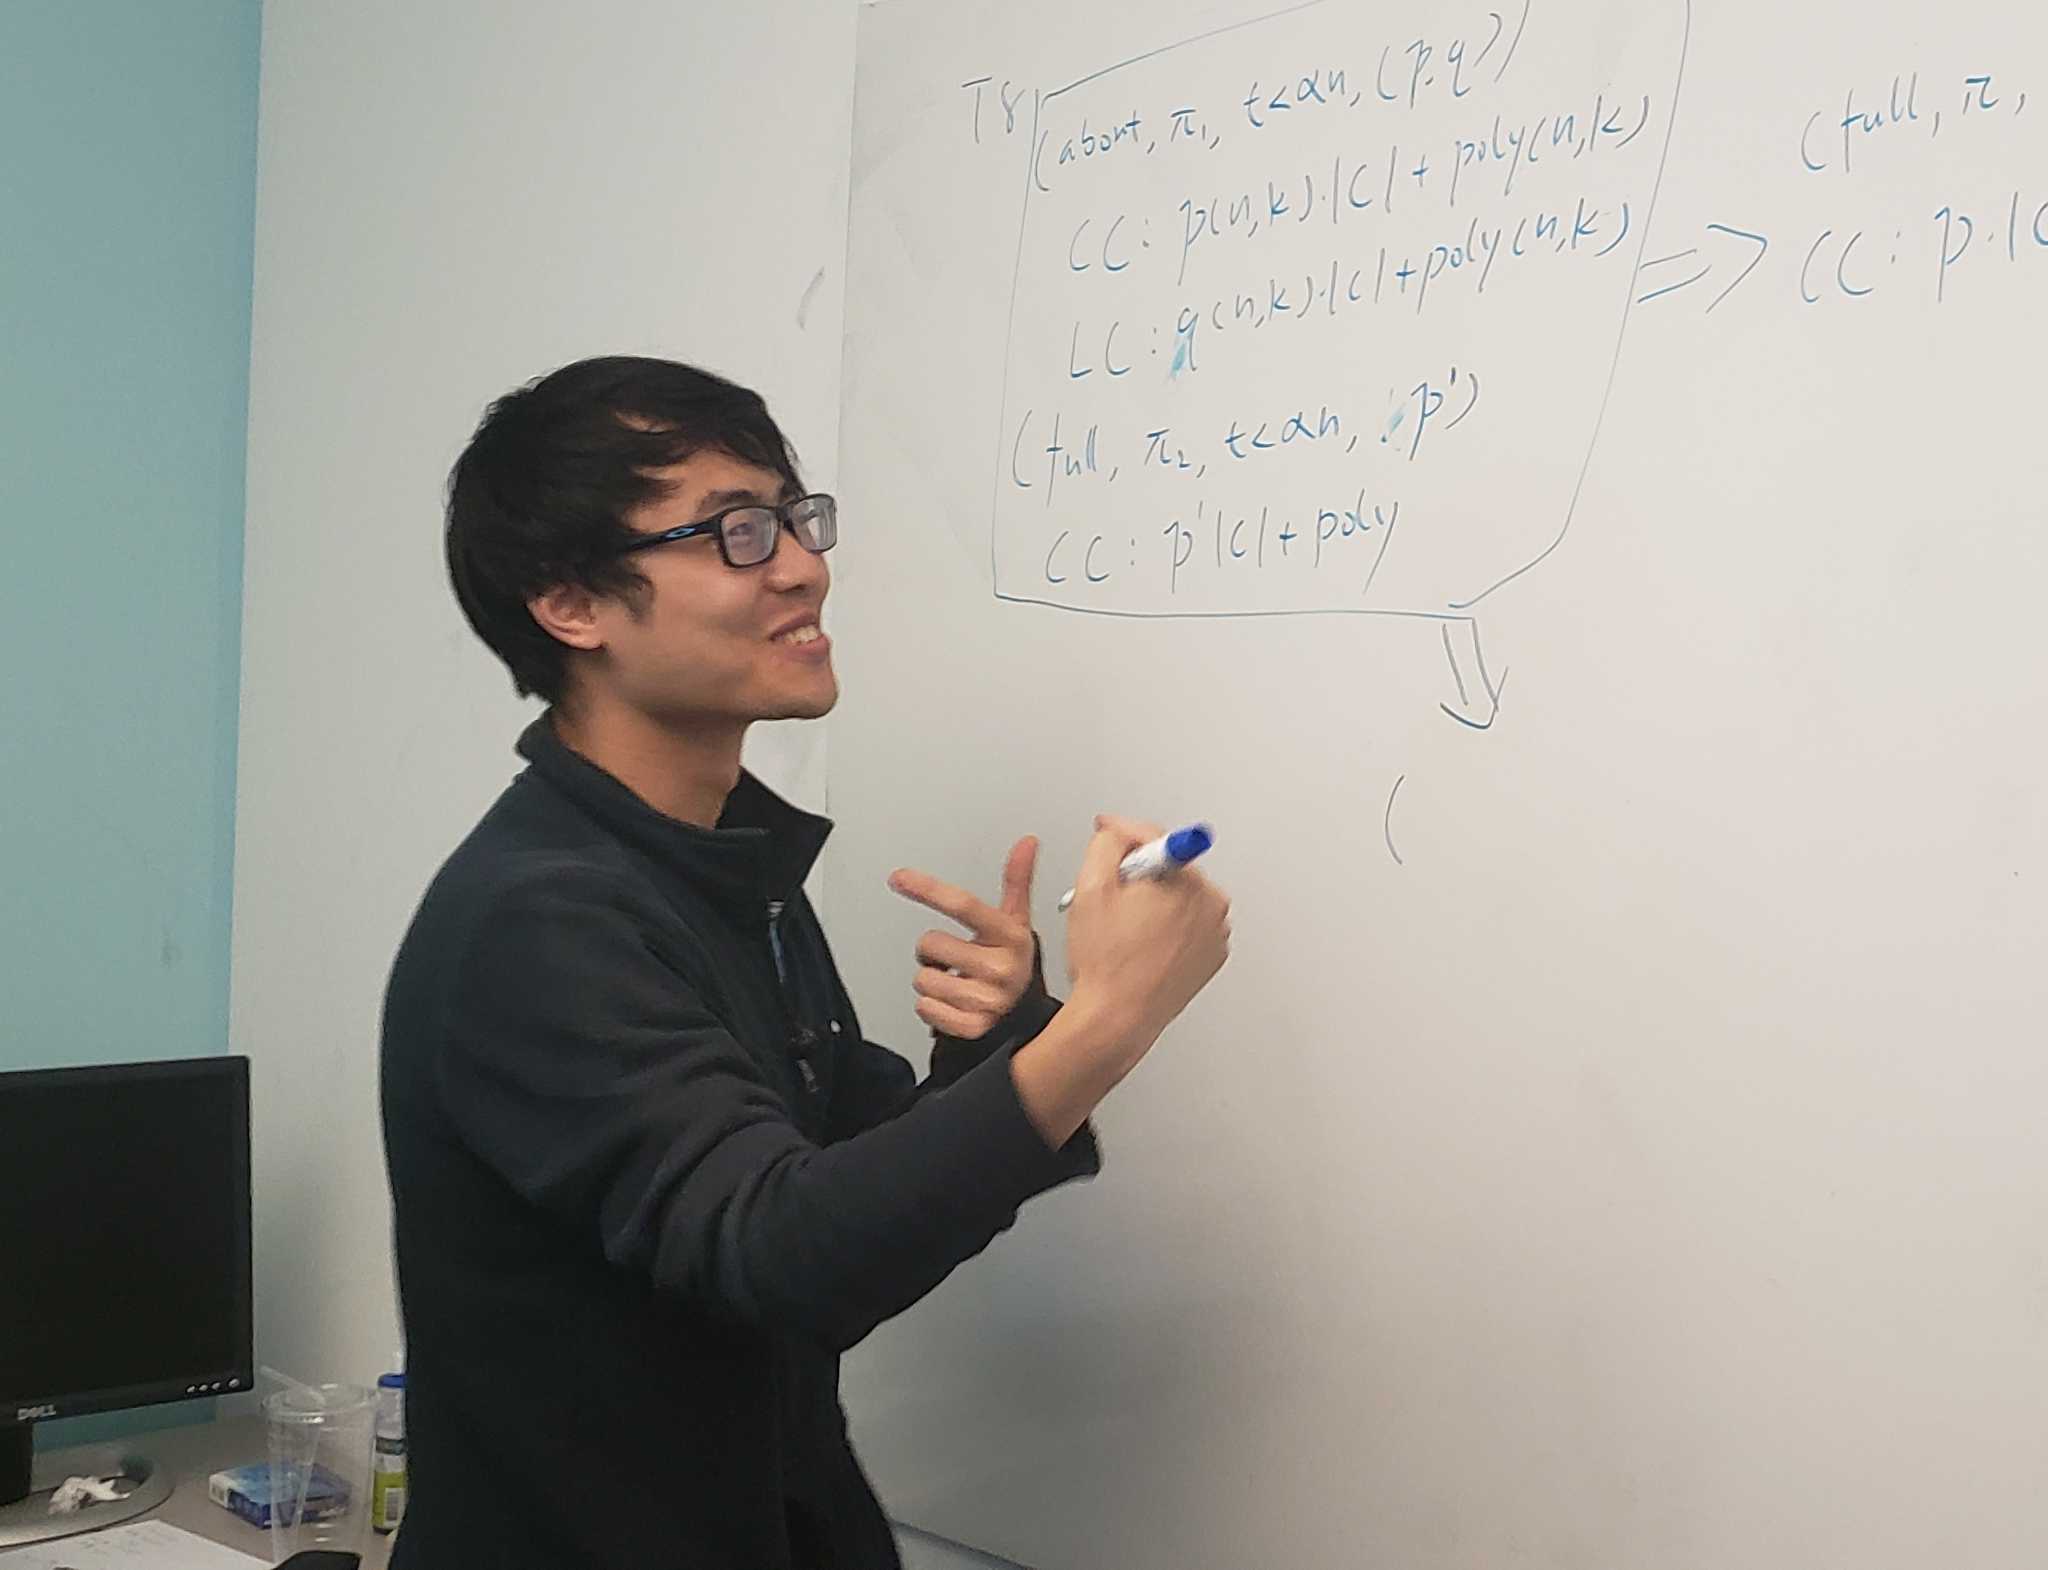 T8
(abort, π₁, t<αn, (p.q))
CC: p(n,k).|C|+poly(n,k)
LC: q(n,k).|C|+poly(n,k)
(full, π₂, t<αn, p')
CC: p'|C|+poly
⇒
(full, π,
CC: p.|C
⇓
(
DELL